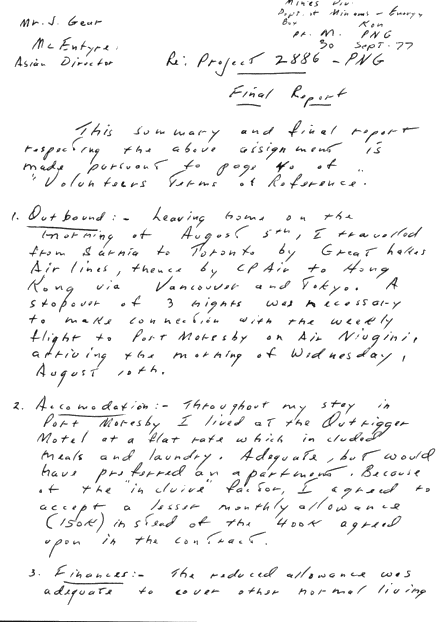 Mines Div.
Dept. of Minerals - Energy
Mr. J. Geur
Box Kon
McEntyre.
Pt. M. PNG
30 Sept. 77
Asian Director
Re: Project 2886 - PNG
Final Report
This summary and final report
respecting the above assignment is
made pursuant to page 40 of
"Volunteers Terms of Reference.
1. Outbound:- Leaving home on the
morning of August 5th, I travelled
from Sarnia to Toronto by Great Lakes
Air lines, thence by CP Air to Hong
Kong via Vancouver and Tokyo. A
stopover of 3 nights was necessary
to make connection with the weekly
flight to Port Moresby on Air Niugini,
arriving the morning of Wednesday,
August 10th.
2. Accomodation:- Throughout my stay in
Port Moresby I lived at the Outrigger
Motel at a flat rate which included
meals and laundry. Adequate, but would
have preferred an apartment. Because
of the "incluive" factor, I agreed to
accept a lesser monthly allowance
(150K) instead of the 400K agreed
upon in the contract.
3. Finances:- The reduced allowance was
adequate to cover other normal living